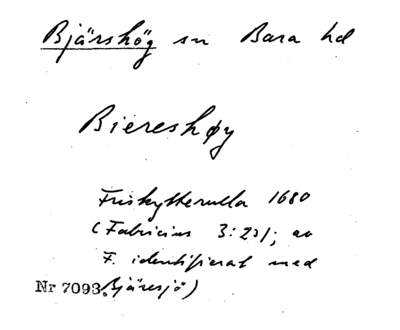 Bjärshög sn Bara hd
Biereshøy
Friskytterulla 1680
(Fabricius 3:23/; av
F. identifierat med
Nr 7093. Bjäresjö)